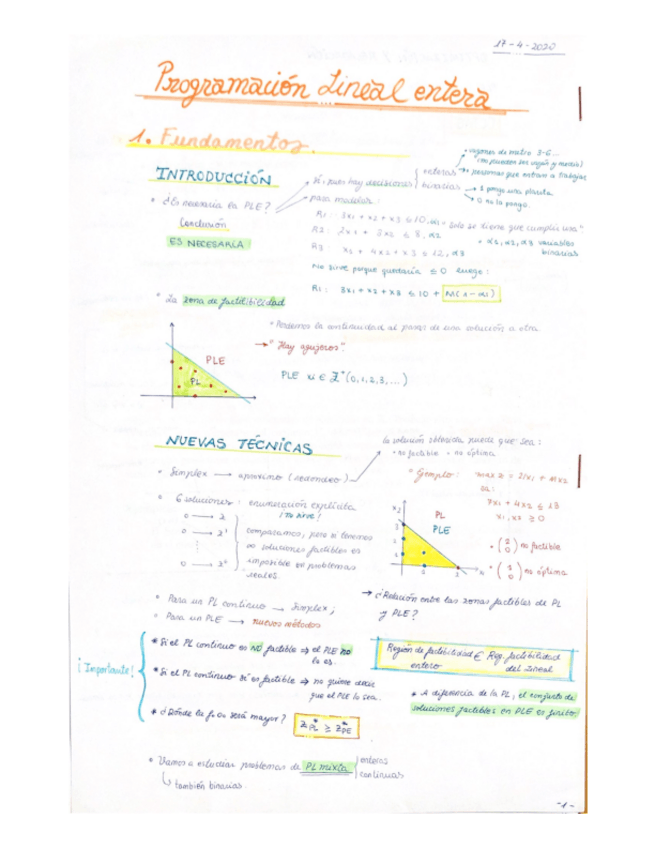 17-4-2020
Programación Lineal entera
1. Fundamentos.
INTRODUCCIÓN
• ¿Es necesaria la PLE?
Conclusión
ES NECESARIA
Sí, pues hay decisiones
enteras
binarias
• vagones de metro 3-6...
• personas que entran a trabajar
1 pongo una planta
0 no la pongo.
para modelos:
R1: 3x1 + x2 + x3 ≤ 10, α1
R2: 2x1 + 3x2 ≤ 8, α2
R3: x1 + 4x2 + x3 ≤ 12, α3
solo se tiene que cumplir una"
• α1, α2, α3 variables
binarias
No sirve porque quedaría ≤ 0 luego:
R1: 3x1 + x2 + x3 ≤ 10 + M(1-α1)
• La zona de factibilidad
• Perdemos la continuidad al pasar de una solución a otra
→ "Hay agujeros".
PLE
PL
PLE xi ∈ Z⁺ (0,1,2,3,...)
NUEVAS TÉCNICAS
• Simplex → aproximo (redondeo)
la solución obtenida puede que sea:
• no factible • no óptima
• 6 soluciones: enumeración explícita
¡no sirve!
comparamos, pero si tenemos
∞ soluciones factibles es
imposible en problemas
reales.
• Ejemplo: max z = 21x1 + 11x2
sa:
7x1 + 4x2 ≤ 13
x1, x2 ≥ 0
x2
PL
PLE
no factible
no óptima
• Para un PL continuo → Simplex;
• Para un PLE → nuevos métodos
→ ¿Relación entre las zonas factibles de PL
y PLE?
¡Importante!
* Si el PL continuo es NO factible ⇒ el PLE no
lo es.
* Si el PL continuo sí es factible ⇒ no quiere decir
que el PLE lo sea.
* ¿Dónde la f.o será mayor? Z*PL ≥ Z*PE
Región de factibilidad ∈ Reg. factibilidad
entero del Lineal
* A diferencia de la PL, el conjunto de
soluciones factibles en PLE es finito!
• Vamos a estudiar problemas de PL mixta
enteras
continuas
↳ también binarias
-1-